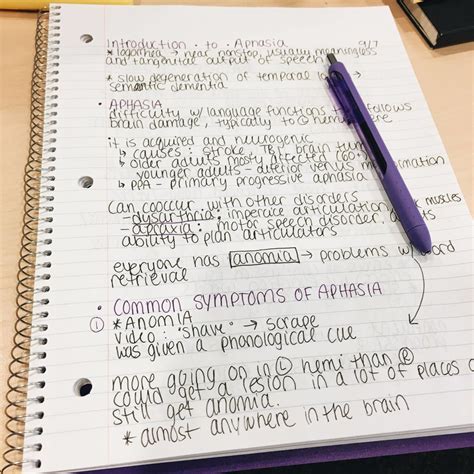 Introduction · to · Aphasia 9/7
* logorrhea → near nonstop, usually meaningless
and tangential output of speech
* slow degeneration of temporal
semantic dementia
· APHASIA
difficulty w/ language functions follows
brain damage, typically to Ⓛ
it is acquired and neurogenic
↳ causes: stroke, TBI, brain
↳ older adults mostly affected (60+)
younger adults - arterior venus
↳ PPA - primary progressive aphasia
can cooccur with other disorders
- dysarthria: imperice articulation, muscles
- apraxia: motor speech disorder,
ability to plan articulators
everyone has anomia → problems w/ word
retrieval
· COMMON SYMPTOMS OF APHASIA
① * ANOMIA
video: "shave" → scrape
was given a phonological cue
more going on in Ⓛ hemi than Ⓡ
could get a lesion in a lot of places
still get anomia.
* almost anywhere in the brain